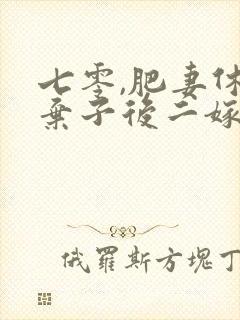 七零,肥妻休
棄子後二嫁
俄羅斯方塊丁